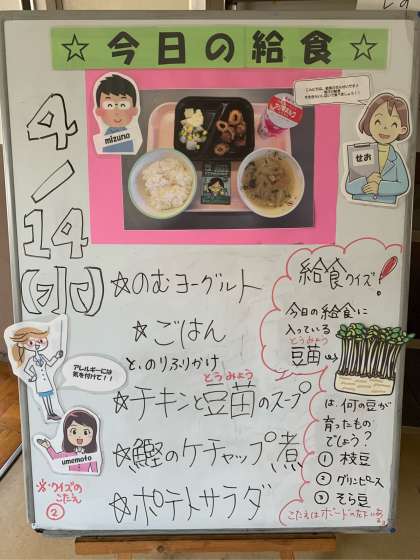 ☆今日の給食☆
4/14(水)
mizuno
せお
☆のむヨーグルト
☆ごはん
と、のりふりかけ
とうみょう
☆チキンと豆苗のスープ
☆鰹のケチャップ煮
☆ポテトサラダ
アレルギーには
気を付けて!!
umemoto
※クイズの
こたえ
②
給食クイズ!
今日の給食に
入っている
とうみょう
豆苗→
は、何の豆が
育ったもの
でしょう?
① 枝豆
② グリンピース
③ そら豆
こたえはボードの左下にある。